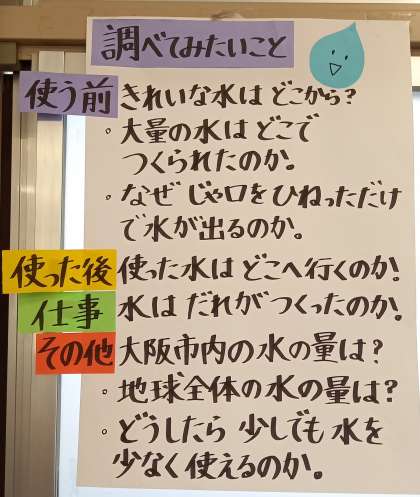 調べてみたいこと
使う前 きれいな水は どこから?
・大量の水は どこで
つくられたのか。
・なぜ じゃ口を ひねっただけ
で水が出るのか。
使った後 使った水は どこへ行くのか!
仕事 水は だれが つくったのか.
その他 大阪市内の 水の量は?
・地球全体の 水の量は?
・どうしたら 少しでも 水を
少なく 使えるのか。